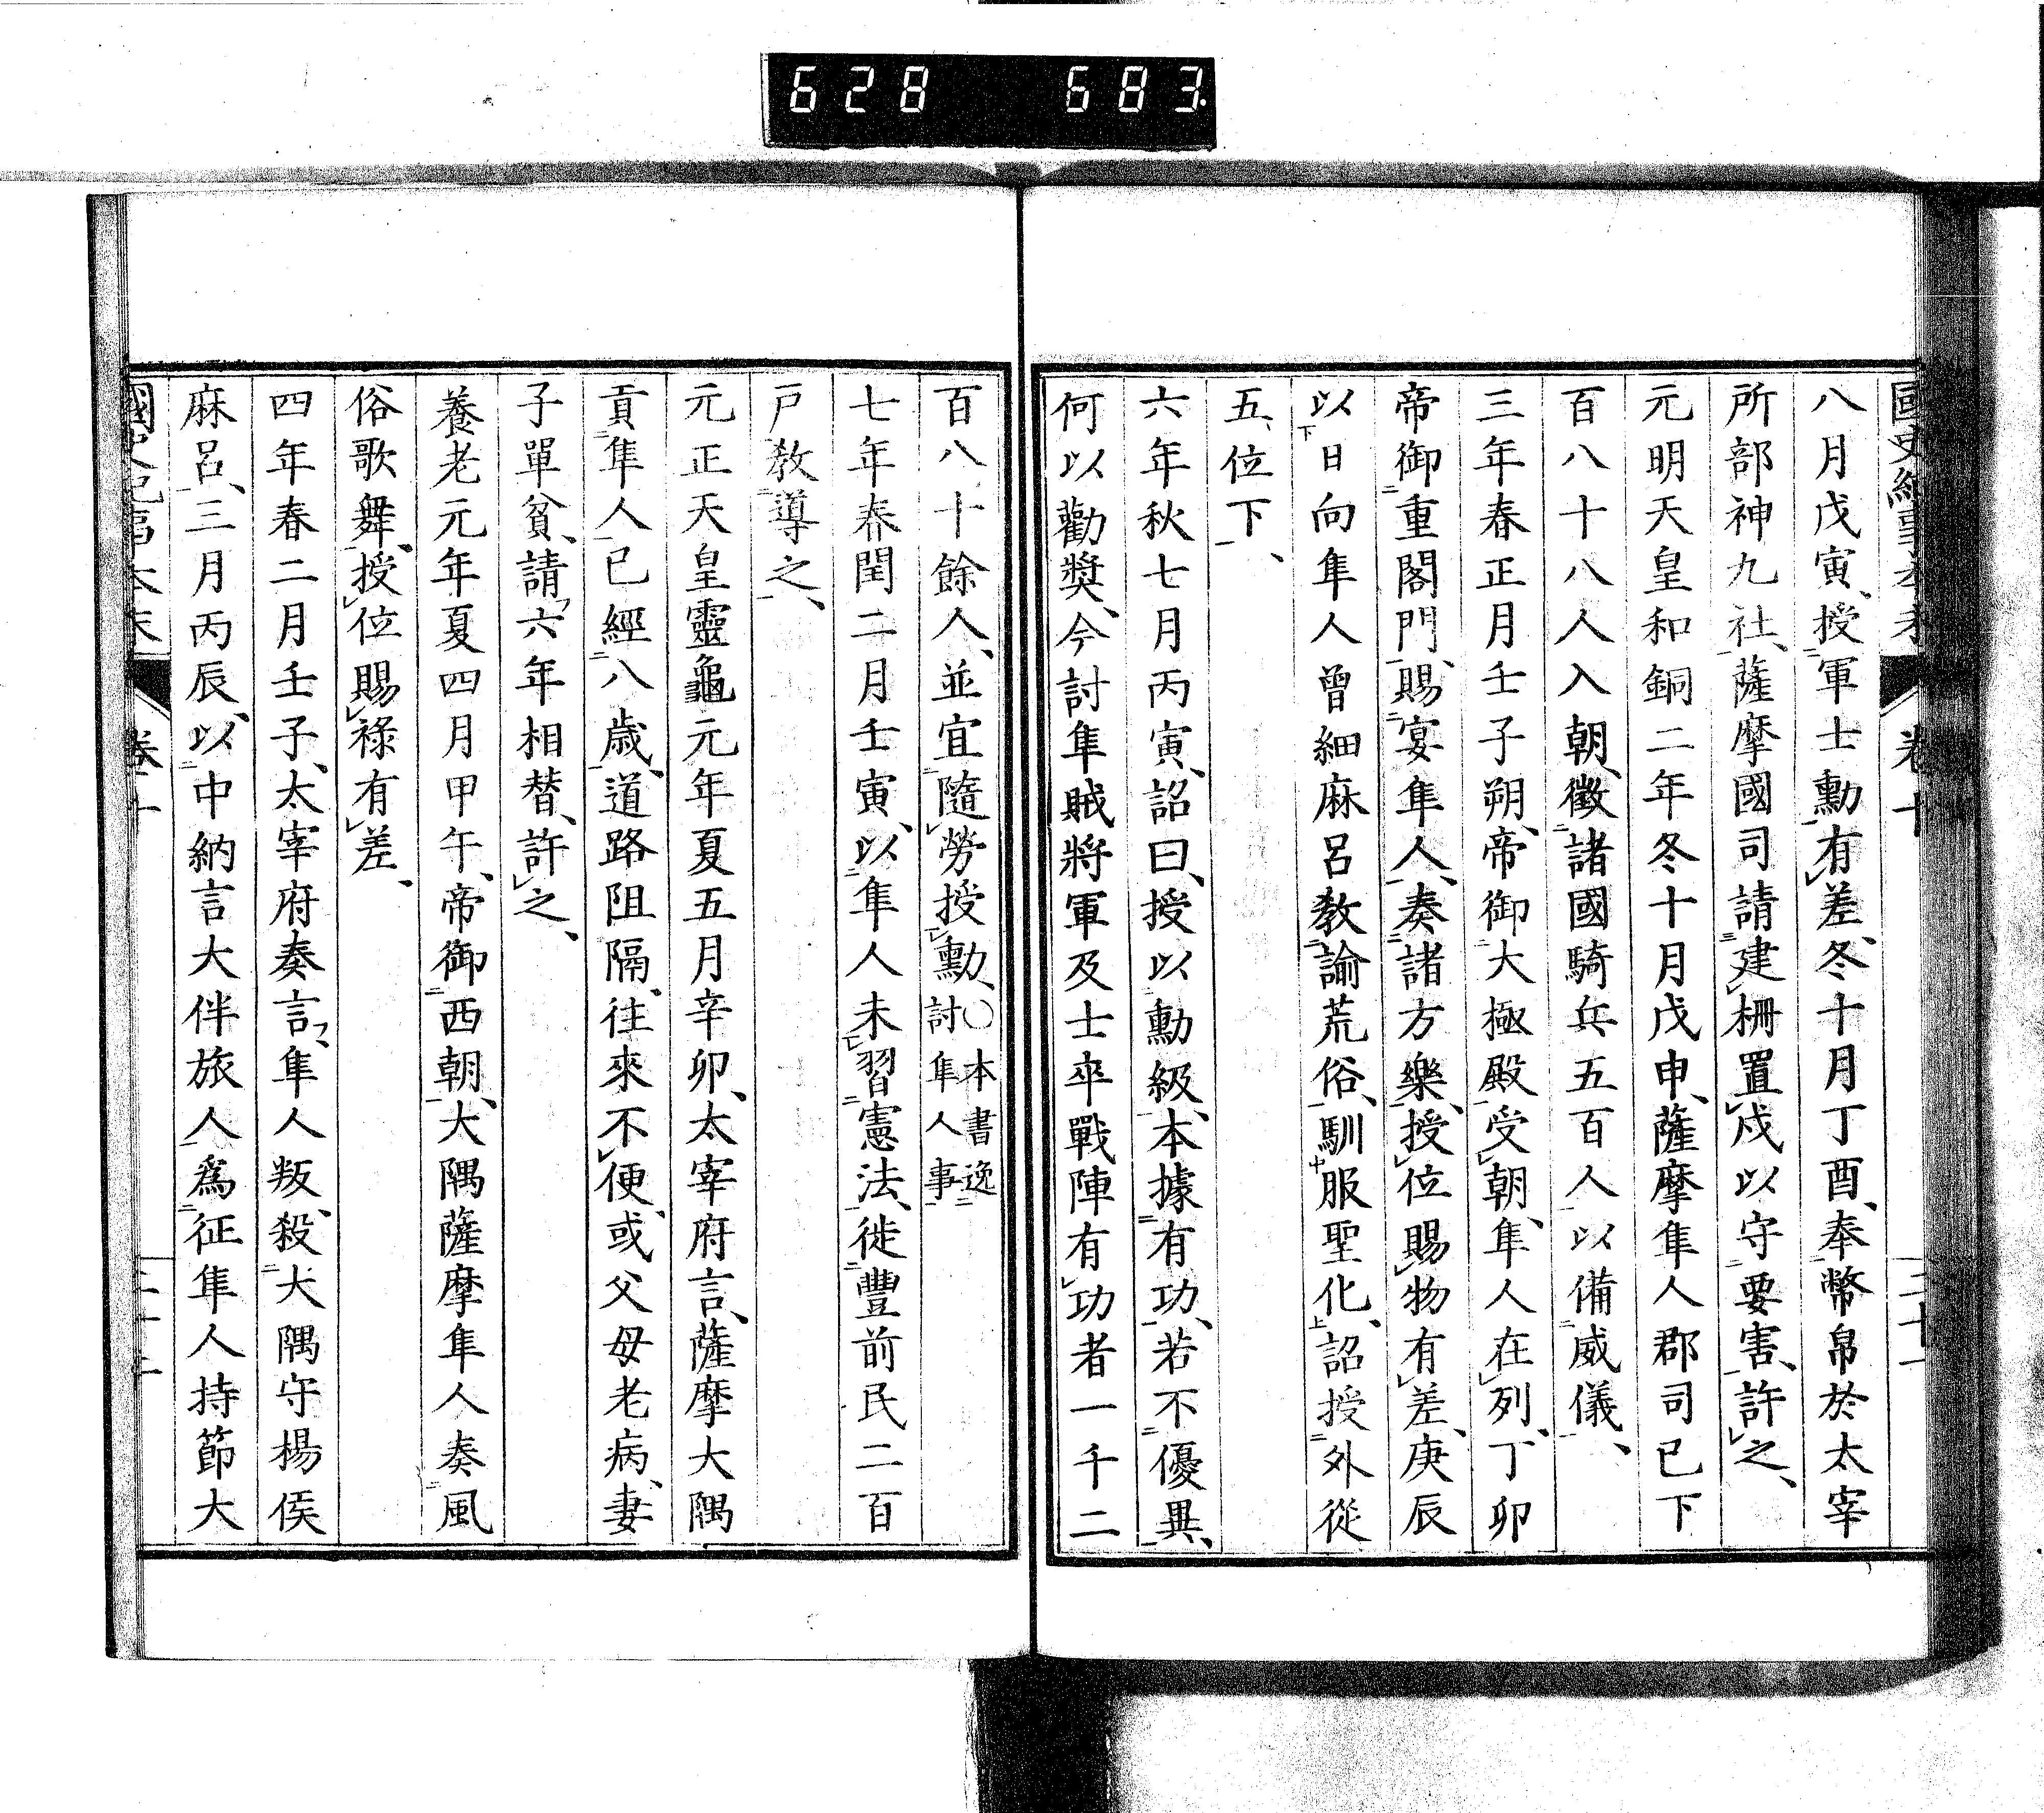 628 683
國史紀事本末 卷十 二十一
八月戊寅、授軍士勳有差、冬十月丁酉、奉幣帛於太宰
所部神九社、薩摩國司請建柵置戍以守要害、許之、
元明天皇和銅二年冬十月戊申、薩摩隼人郡司已下
百八十八人入朝、徵諸國騎兵五百人以備威儀、
三年春正月壬子朔、帝御大極殿受朝、隼人在列、丁卯
帝御重閣門、賜宴隼人、奏諸方樂、授位賜物有差、庚辰
以日向隼人曾細麻呂教諭荒俗、馴服聖化、詔授外從
五位下、
六年秋七月丙寅、詔曰、授以勳級、本據有功、若不優異、
何以勸奬、今討隼賊將軍及士卒戰陣有功者一千二
百八十餘人、並宜隨勞授勳、〇本書逸討隼人事
七年春閏二月壬寅、以隼人未習憲法、徙豐前民二百
戸教導之、
元正天皇靈龜元年夏五月辛卯、太宰府言、薩摩大隅
貢隼人已經八歳、道路阻隔、往來不便、或父母老病、妻
子單貧、請六年相替、許之、
養老元年夏四月甲午、帝御西朝、大隅薩摩隼人奏風
俗歌舞、授位賜祿有差、
四年春二月壬子、太宰府奏言、隼人叛、殺大隅守楊侯
麻呂、三月丙辰、以中納言大伴旅人爲征隼人持節大
國史紀事本末 卷十